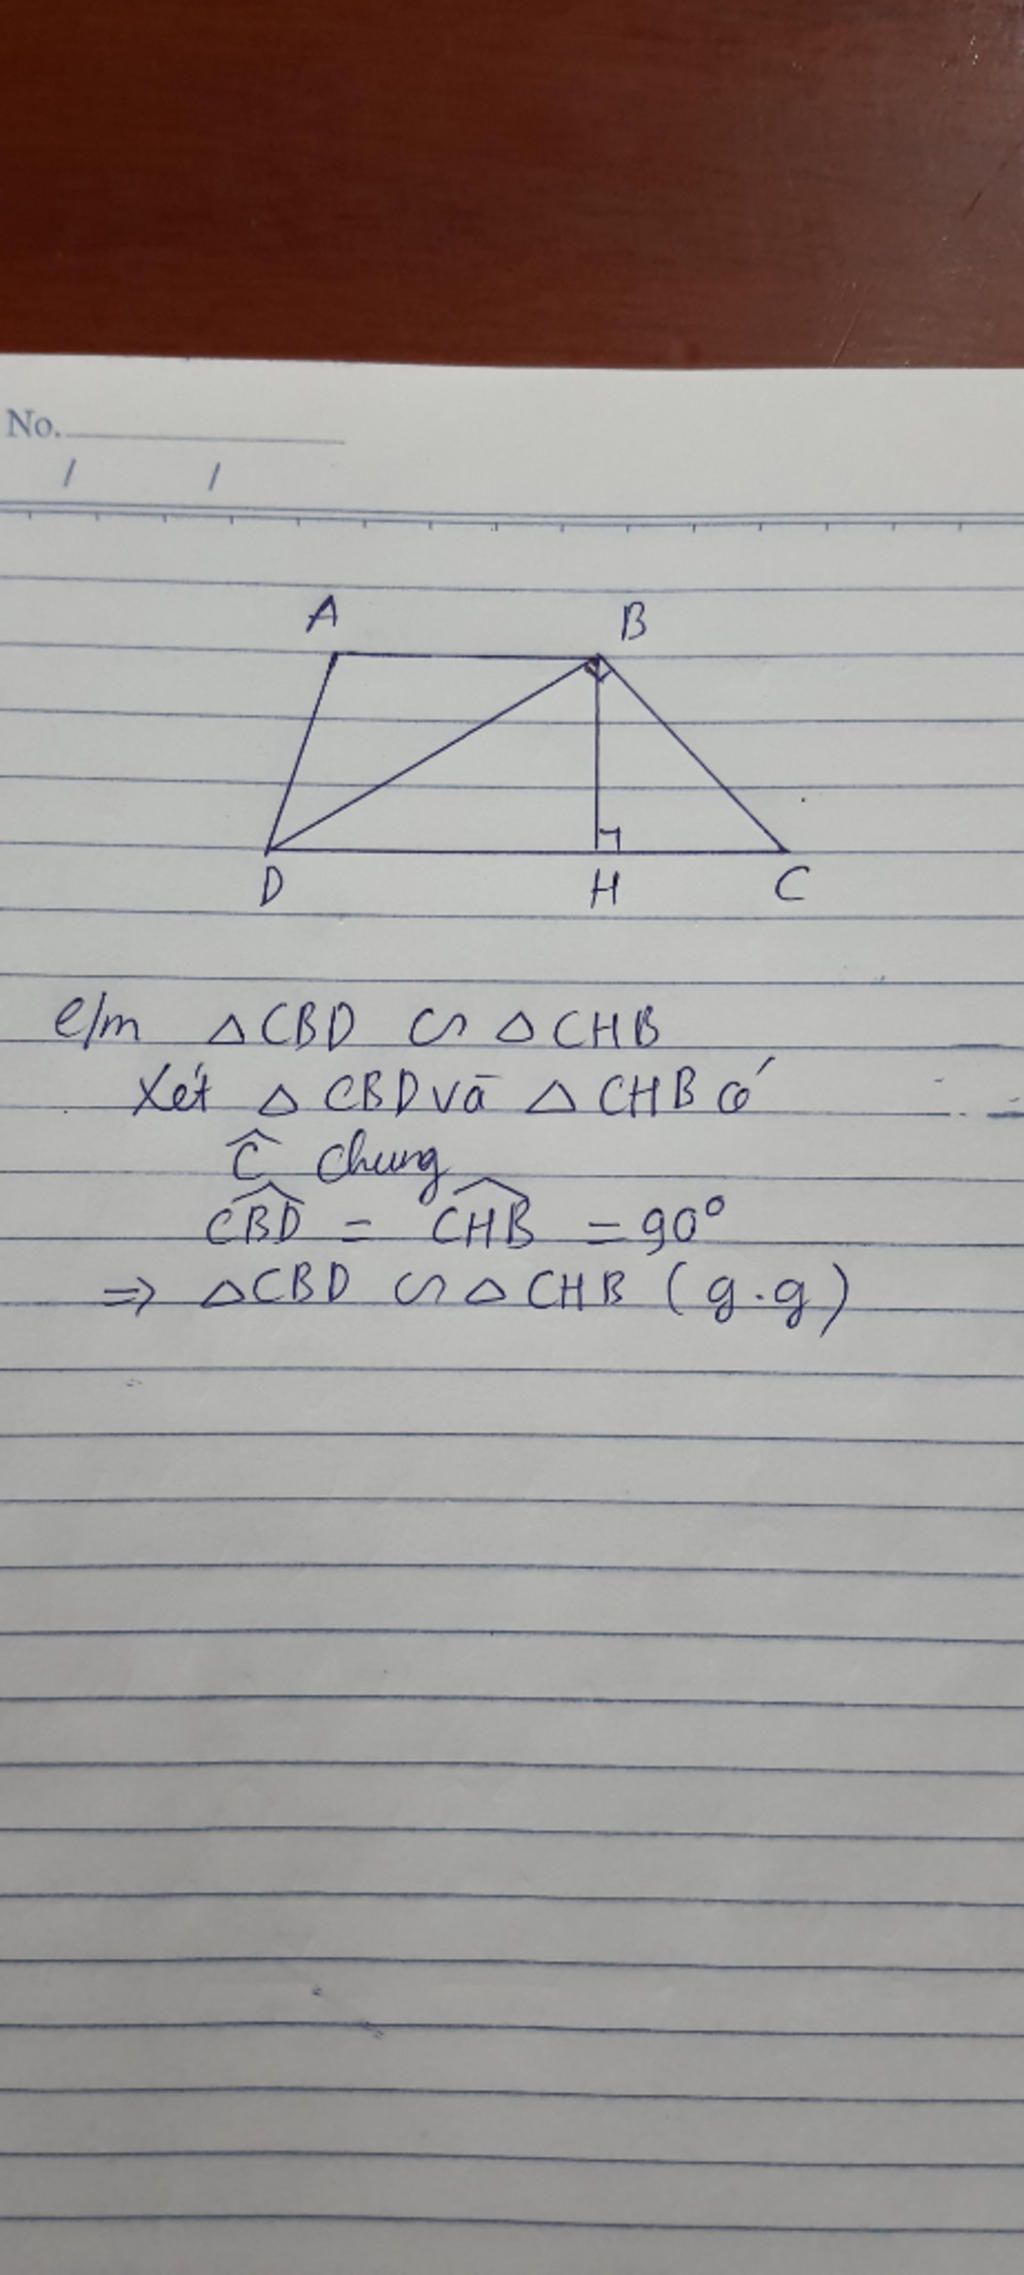 No.
/ /
A B
D H C
c/m △CBD ∽ △CHB
Xét △CBD và △CHB có
Ĉ chung
\widehat{CBD} = \widehat{CHB} = 90°
=> △CBD ∽ △CHB (g.g)